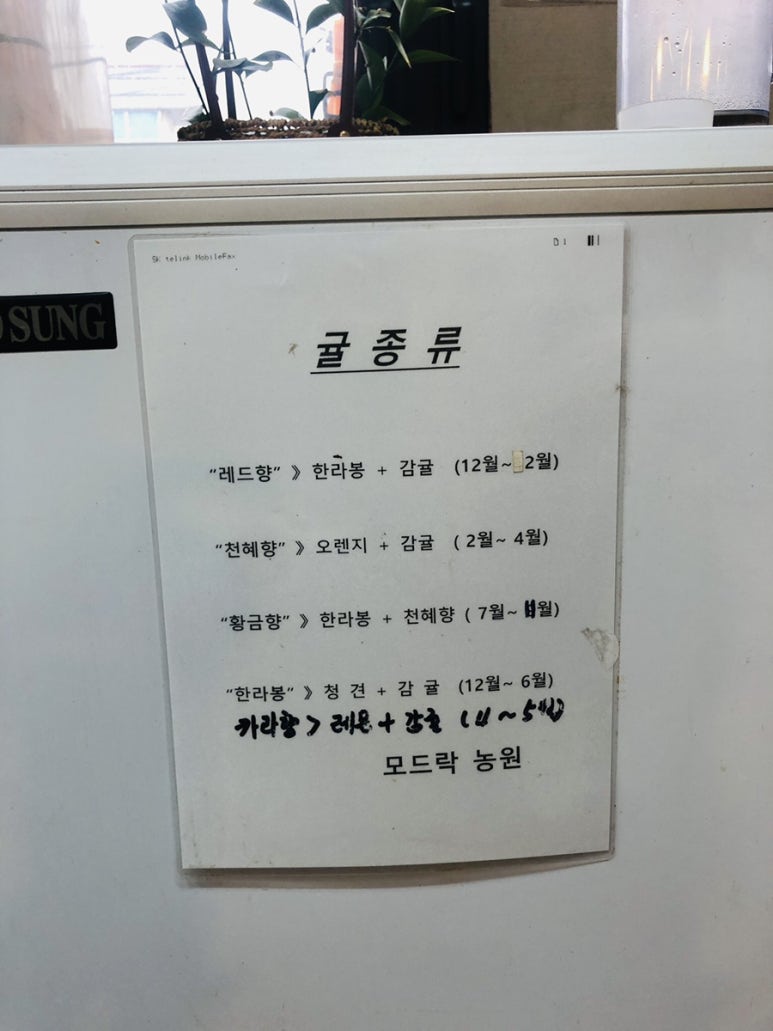 SK telink MobileFax
SUNG
귤 종 류
“레드향” 》 한라봉 + 감귤 (12월~ 2월)
“천혜향” 》 오렌지 + 감귤 ( 2월~ 4월)
“황금향” 》 한라봉 + 천혜향 ( 7월~ 11월)
“한라봉” 》 청 견 + 감 귤 (12월~ 6월)
카라향 > 레몬 + 감귤 (4~5월)
모드락 농원